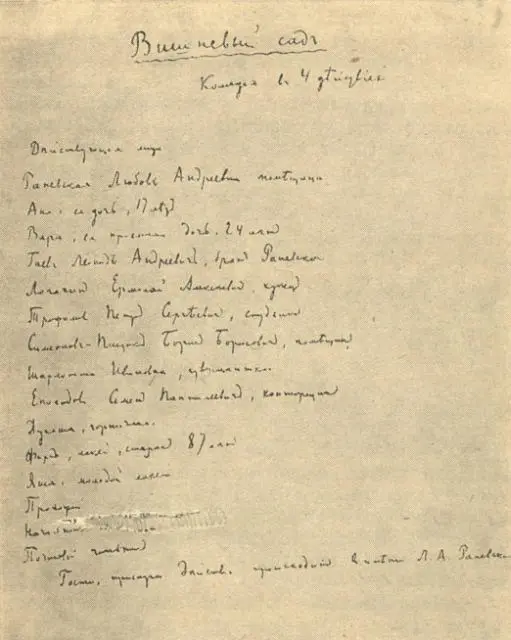 Вишневый садъ
Комедiя в 4 дѣйствiях
Дѣйствующiя лица
Раневская Любовь Андреевна помѣщица
Аня, ея дочь, 17 лѣтъ
Варя, ея прiемная дочь, 24 лѣтъ
Гаевъ Леонидъ Андреевичъ, братъ Раневской
Лопахинъ Ермолай Алексѣевичъ, купецъ
Трофимовъ Петръ Сергѣевичъ, студентъ
Симеоновъ-Пищикъ Борисъ Борисовичъ, помѣщикъ
Шарлотта Ивановна, гувернантка
Епиходовъ Семенъ Пантелеевичъ, конторщикъ
Дуняша, горничная.
Фирсъ, лакей, старикъ 87 лѣтъ
Яша, молодой лакей
Прохожiй
Почтовый чиновникъ
Гости, прислуга Дѣйствiе происходитъ в имѣнiи Л. А. Раневской